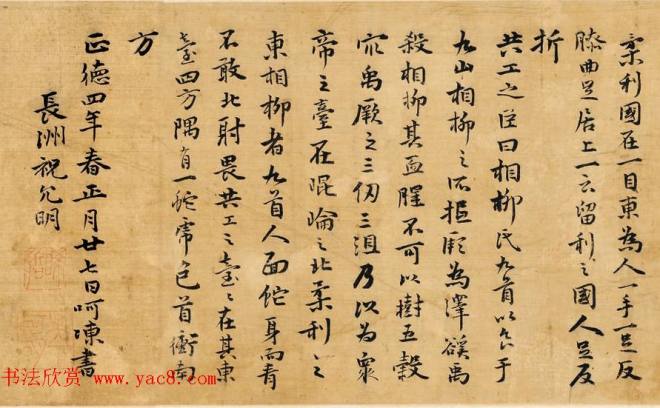 柔利國在一目東為人一手一足反
膝曲足居上一云留利之國人足反
折
共工之臣曰相柳氏九首以食于
九山相柳之所抵厥為澤谿禹
殺相柳其血腥不可以樹五穀
禹厥之三仞三沮乃以為衆
帝之臺在崐崘之北柔利之
東相柳者九首人面蛇身而青
不敢北射畏共工之臺々在其東
臺四方隅有一蛇虎色首衝南
方
正德四年春正月廿七日呵凍書
長洲祝允明
书法欣赏 www.yac8.com